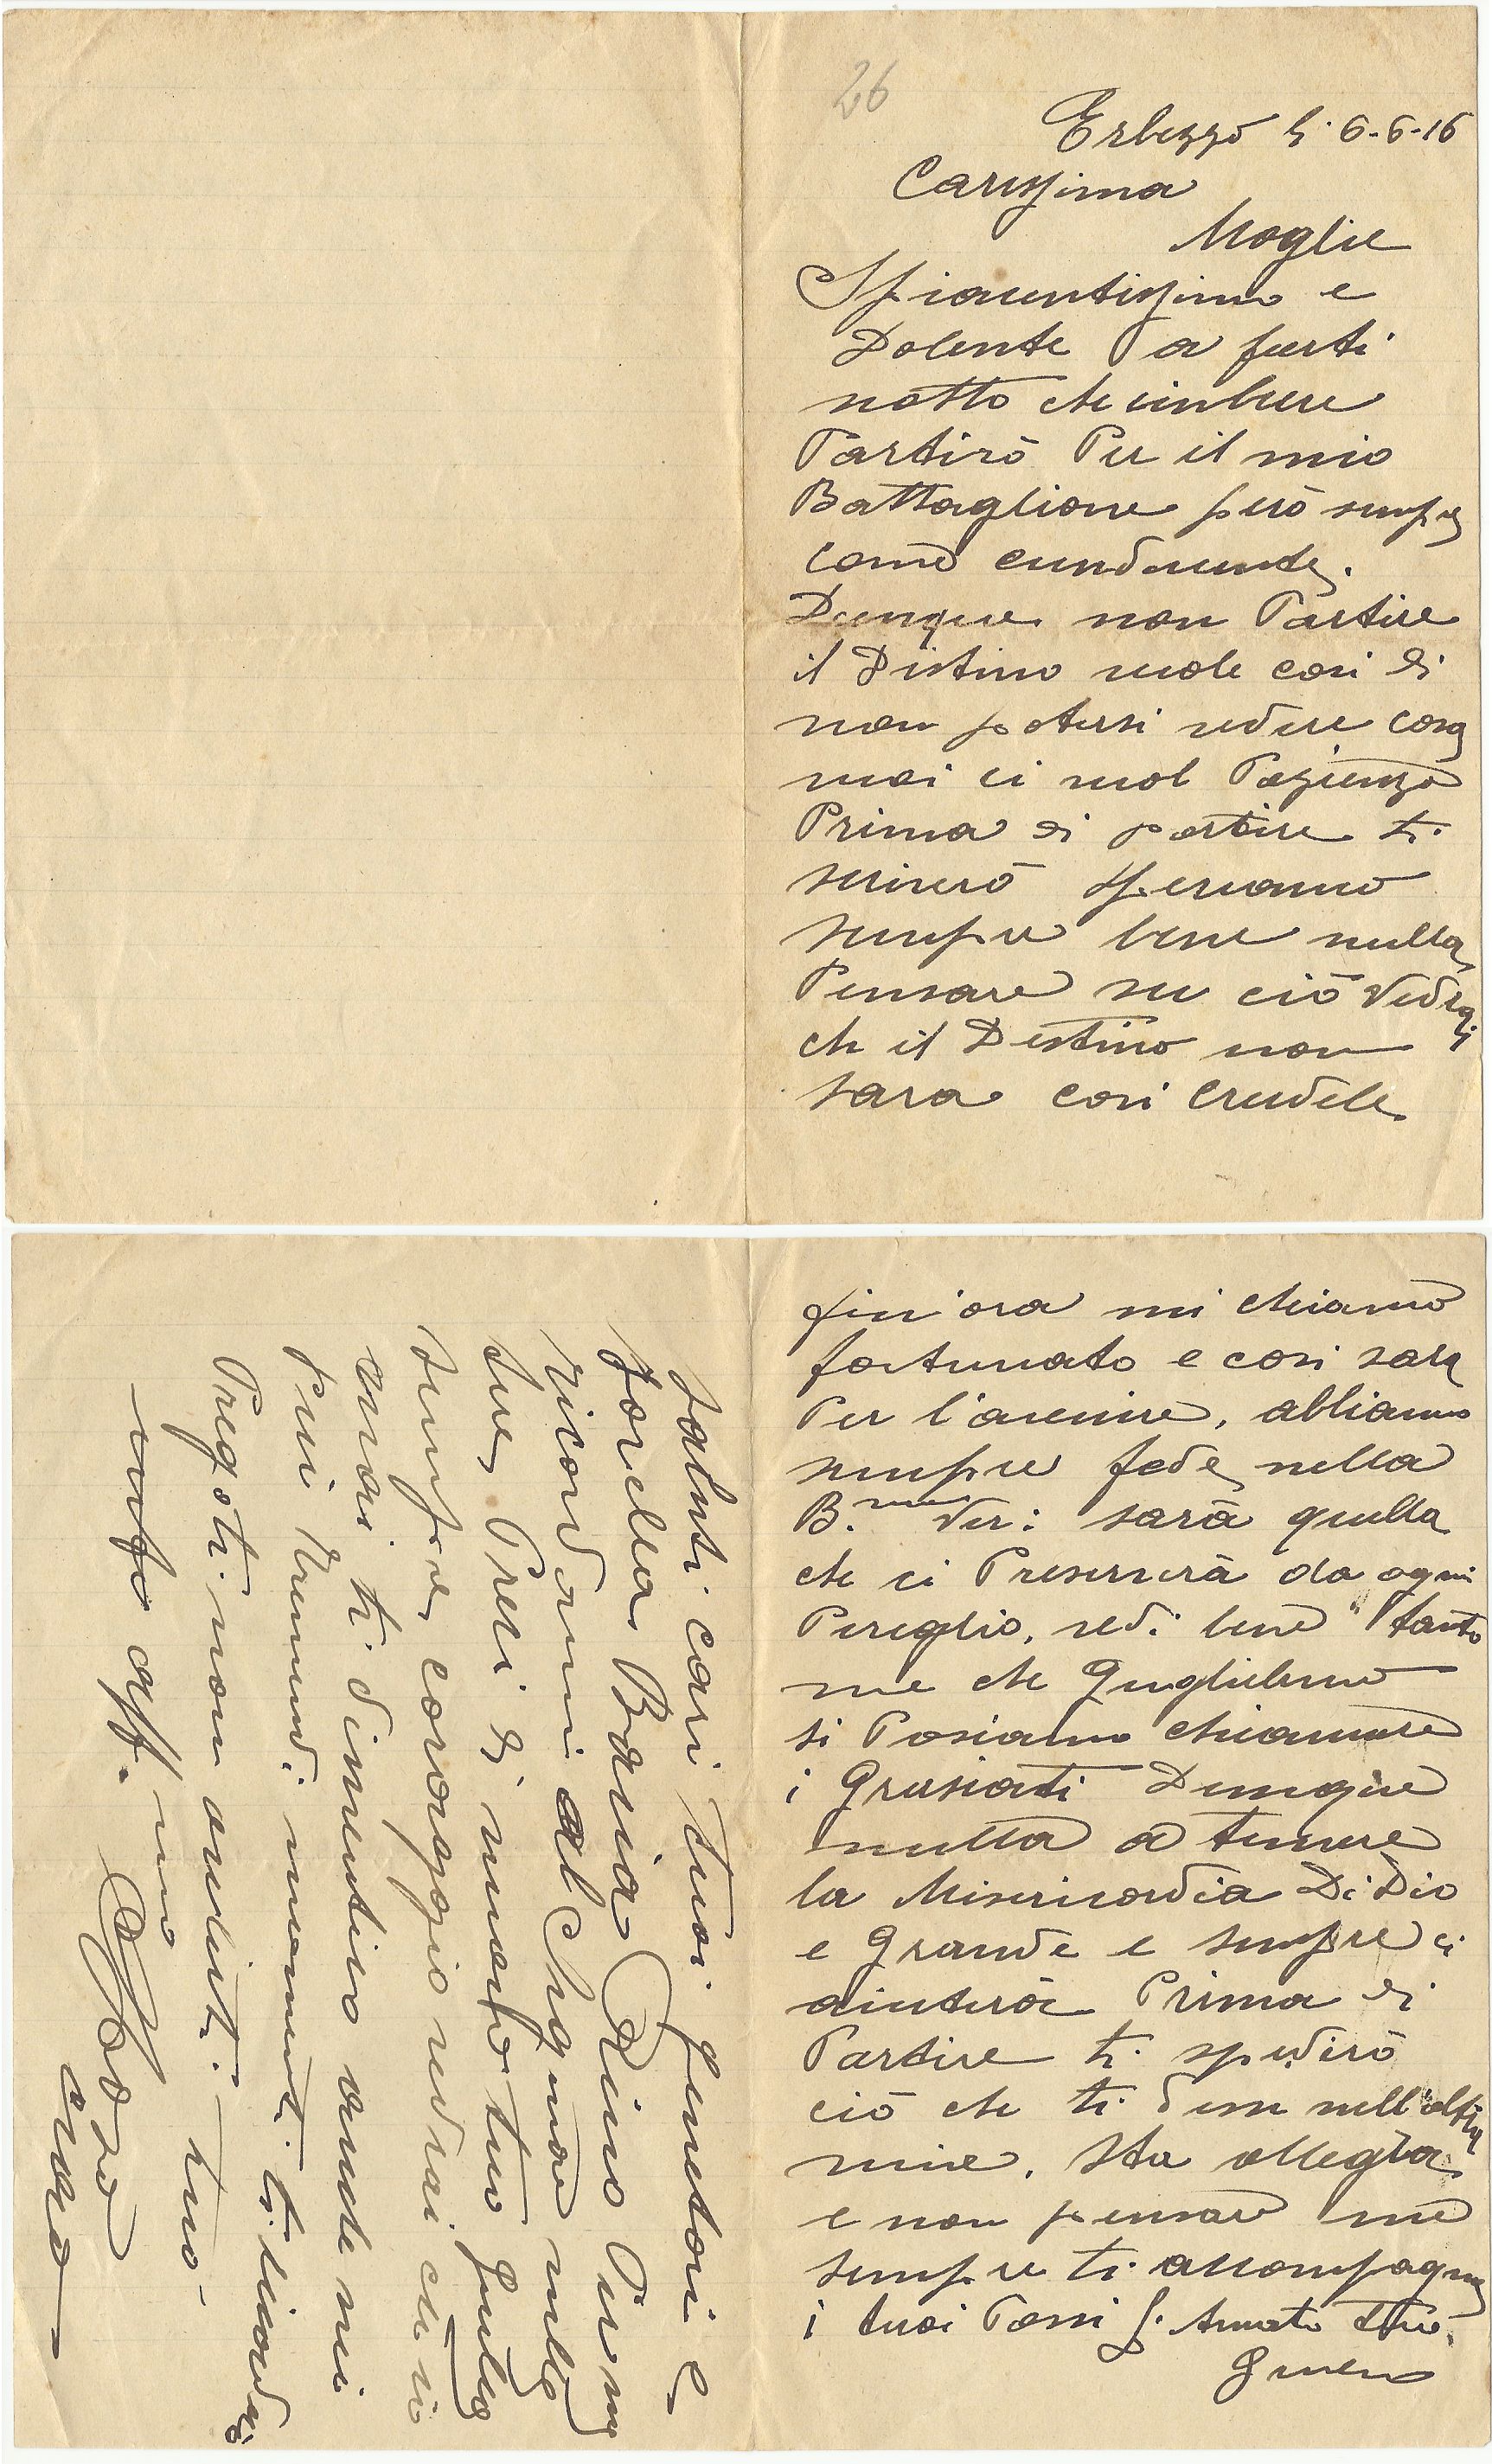 26
Erbezzo li 6-6-16
Carissima
Moglie
Spiacentissimo e
Dolente a farti
notto che in breve
Partirò Per il mio
Battaglione però sempre
come cunducente.
Dunque non Partire
il Distino vuole cosi di
non potersi vedere cosa
mai ci vuol Pazienza
Prima di partire ti
scriverò speriamo
sempre bene nulla
Pensare su ciò Vedrai
che il Destino non
sara cosi crudele
fin'ora mi chiamo
fortunato e cosi sara
Per l'avenire, abbiamo
sempre fede nella
B. Ver: sarà quella
che ci Preserverà da ogni
Pereglio, vedi bene tanto
me che Guglielmo
si Posiamo chiamare
i Grasiati Dunque
nulla a temere
la Misericordia Di Dio
e Grande e sempre ci
aiuterà Prima di
Partire ti spedirò
ciò che ti dissi nell'altra
mia. Sta allegra
e non pensare me
sempre ti accompagna
i tuoi Passi
Saluti cari tuoi Genitori e
sorella Bania Rino
ricordami al
tue Preci di
sempre coraggio vedrai che io
mai ti dimentico anche nei
Più tremendi momenti ti ricordo
Pregoti non avvilirti tuo
aff. mo